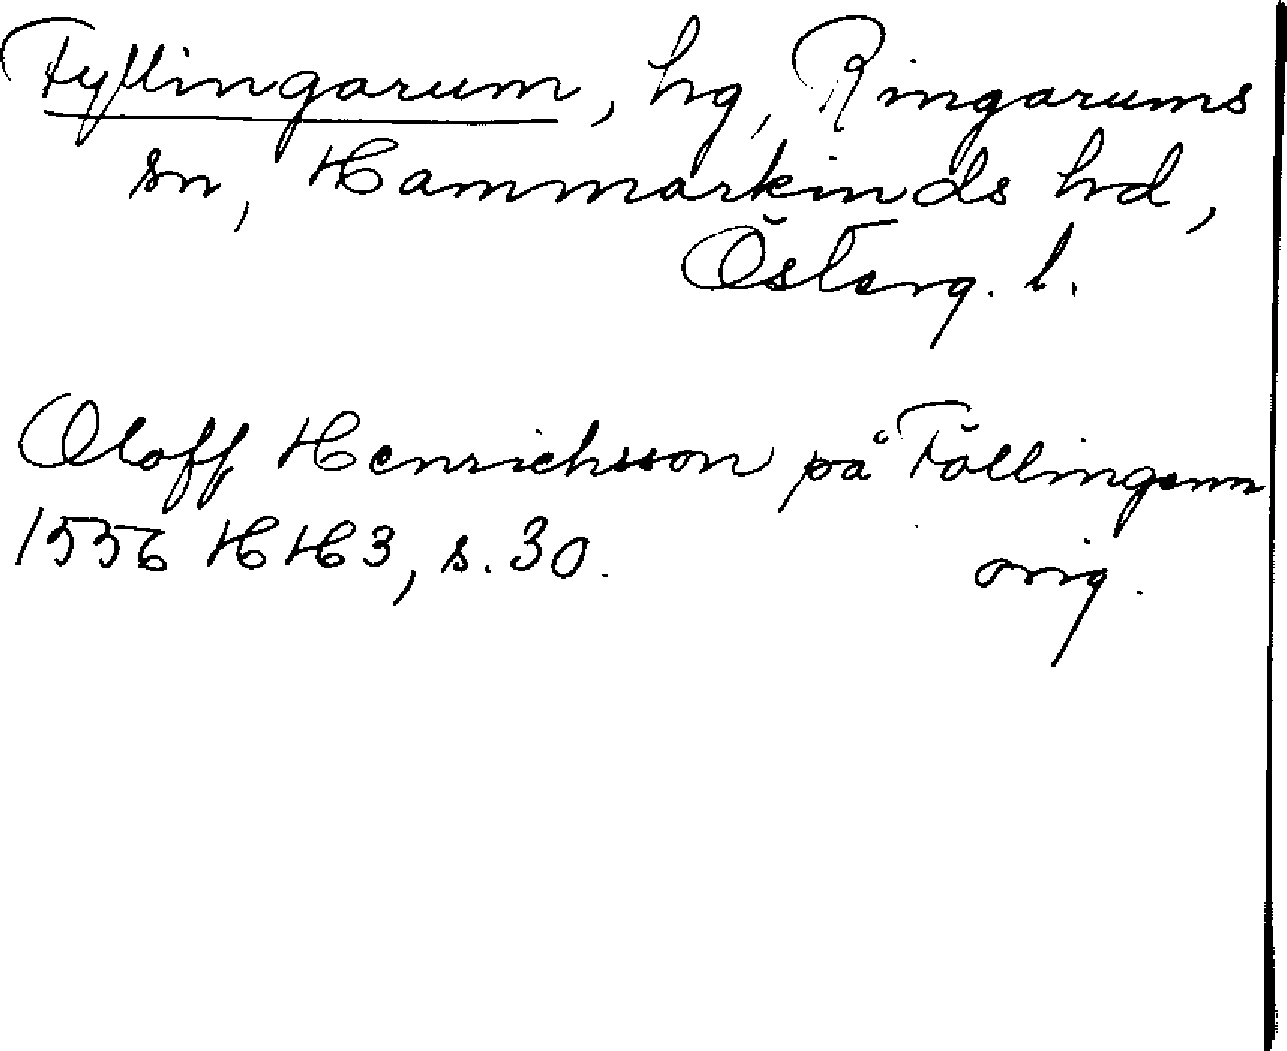 Fyllingarum, hg, Ringarums
sn, Hammarkinds hd,
Österg. l.
Oloff Henrichsson på Föllingenn
1556 HH3, s. 30. orig.